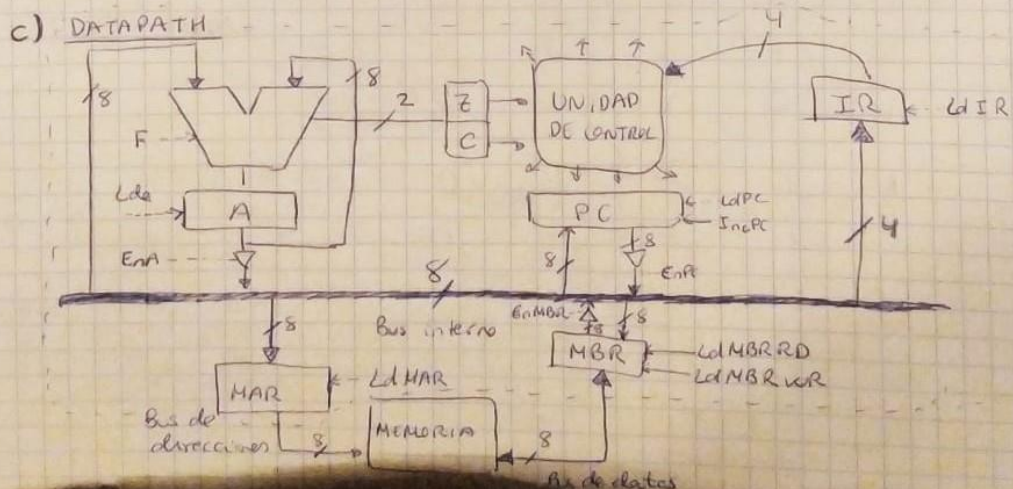 c) DATAPATH
4
8
8
2
Z
C
UNIDAD
DE CONTROL
IR
LdIR
F
Lda
A
PC
LdPC
IncPC
EnA
8
8
EnPC
4
8
Bus interno
8
EnMBR
8
8
MBR
LdMBRRD
LdMBRWR
MAR
LdMAR
Bus de
direcciones
8
MEMORIA
8
Bus de datos